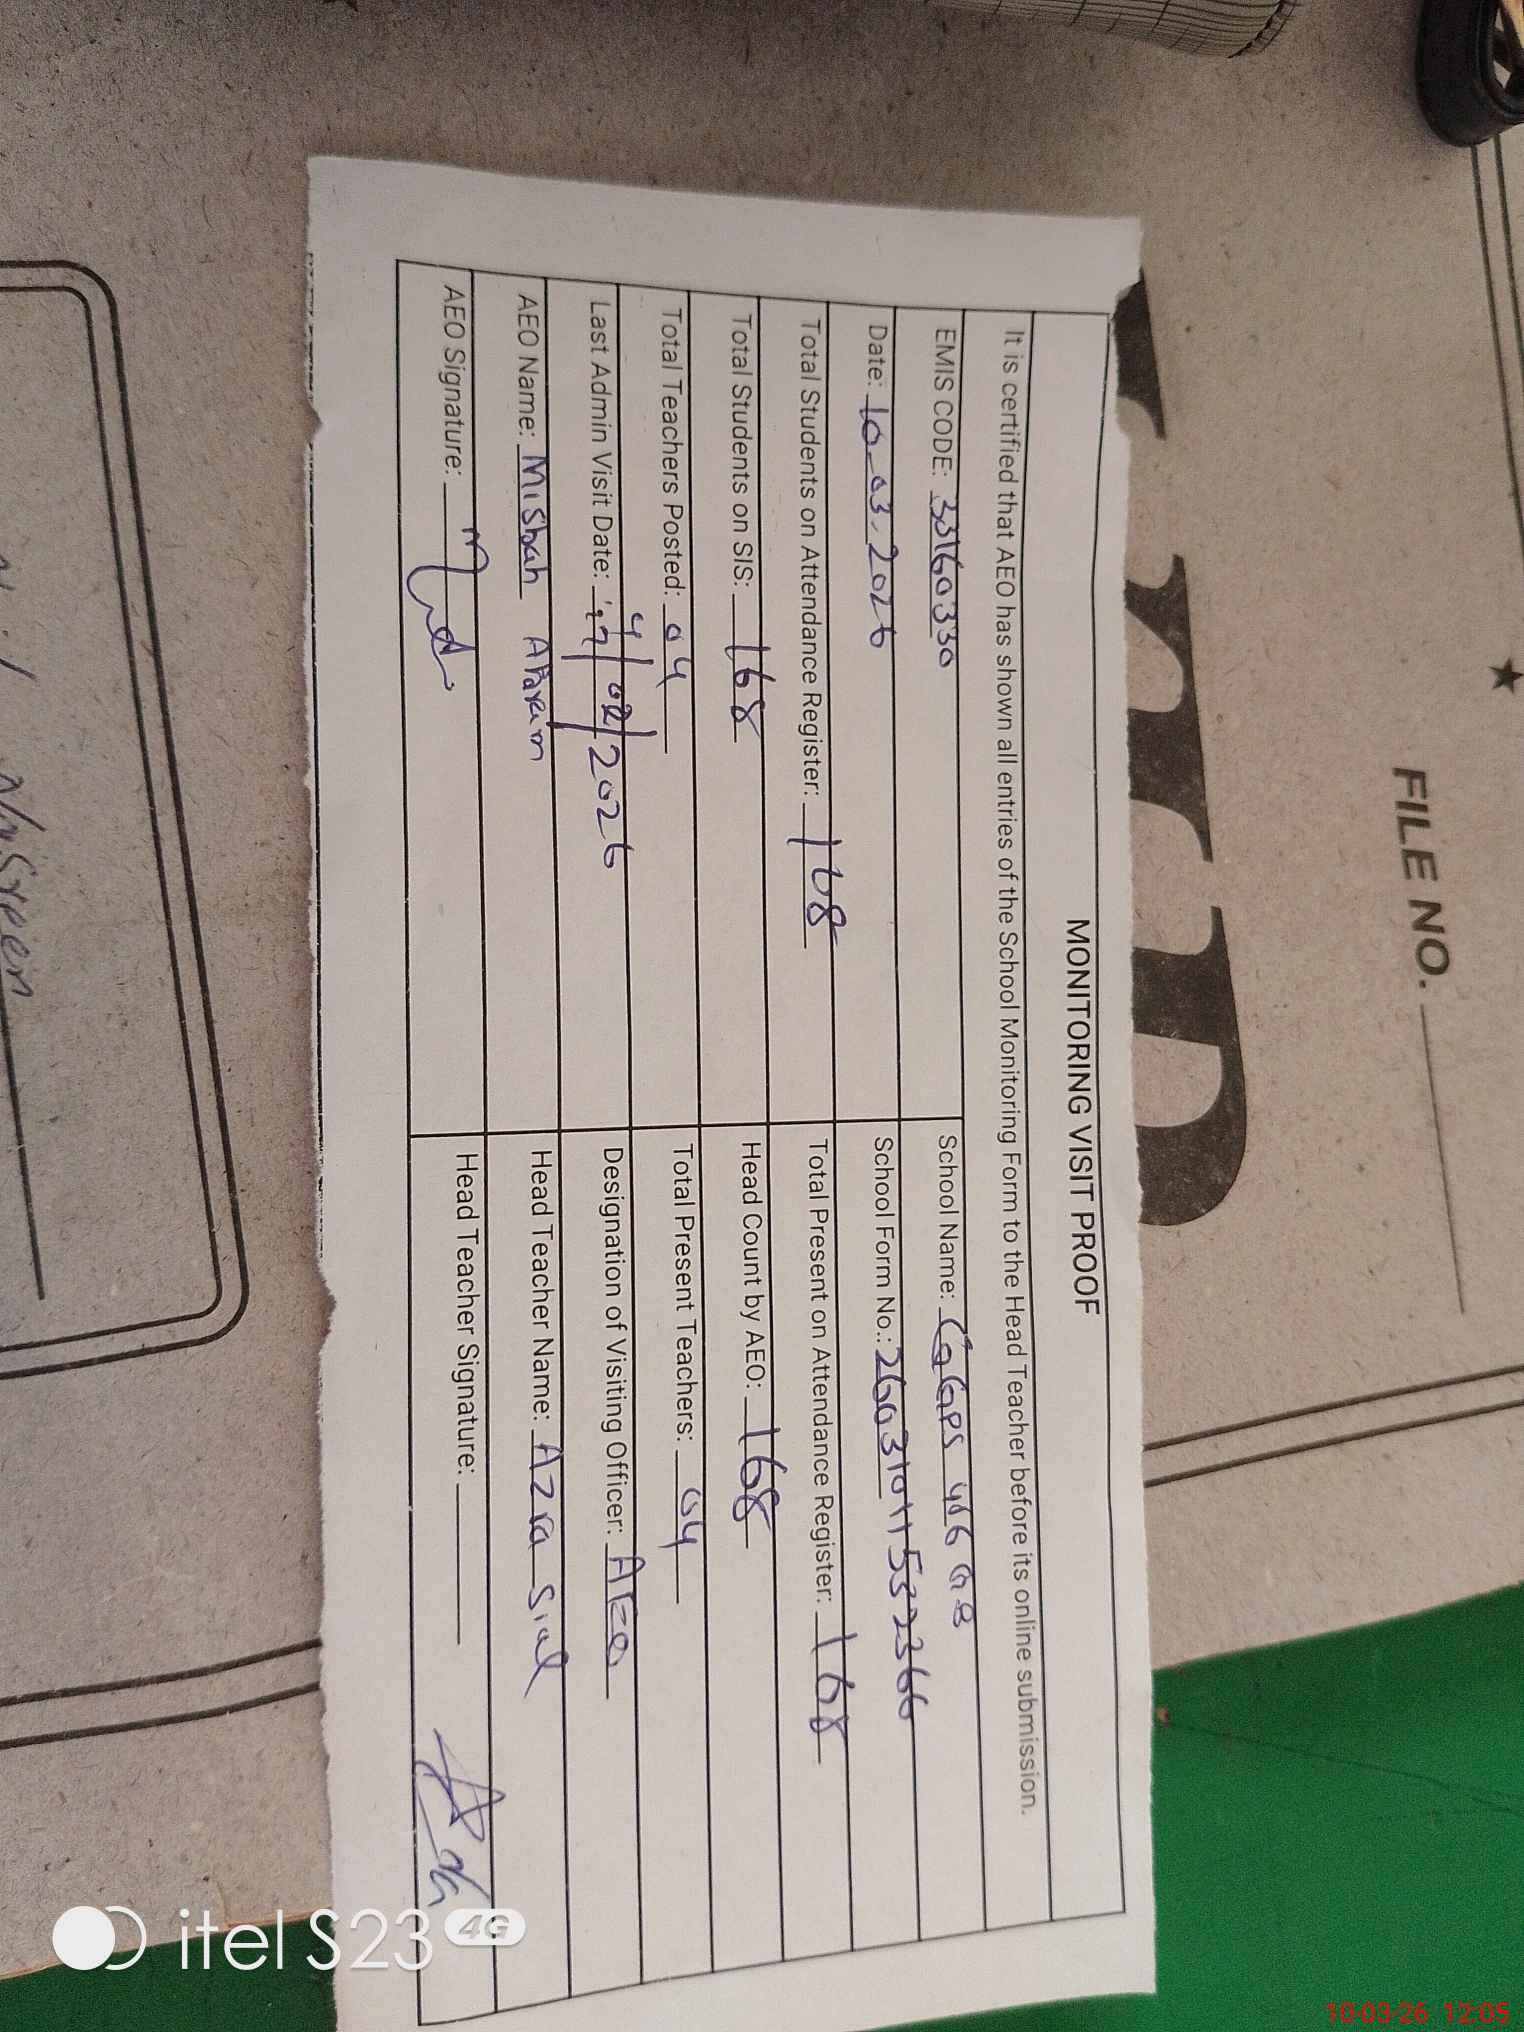 FILE NO.
MONITORING VISIT PROOF
It is certified that AEO has shown all entries of the School Monitoring Form to the Head Teacher before its online submission.
EMIS CODE: 33160330
School Name: GGPS 486 GB
Date: 10-03-2026
School Form No.: 26031011532366
Total Students on Attendance Register: 168
Total Present on Attendance Register: 168
Total Students on SIS: 168
Head Count by AEO: 168
Total Teachers Posted: 04
Total Present Teachers: 04
Last Admin Visit Date: /02/2026
Designation of Visiting Officer: AEO
AEO Name: Misbah Akram
Head Teacher Name: Azra Sial
AEO Signature:
Head Teacher Signature:
itel S23 4G
10-03-26 12:05